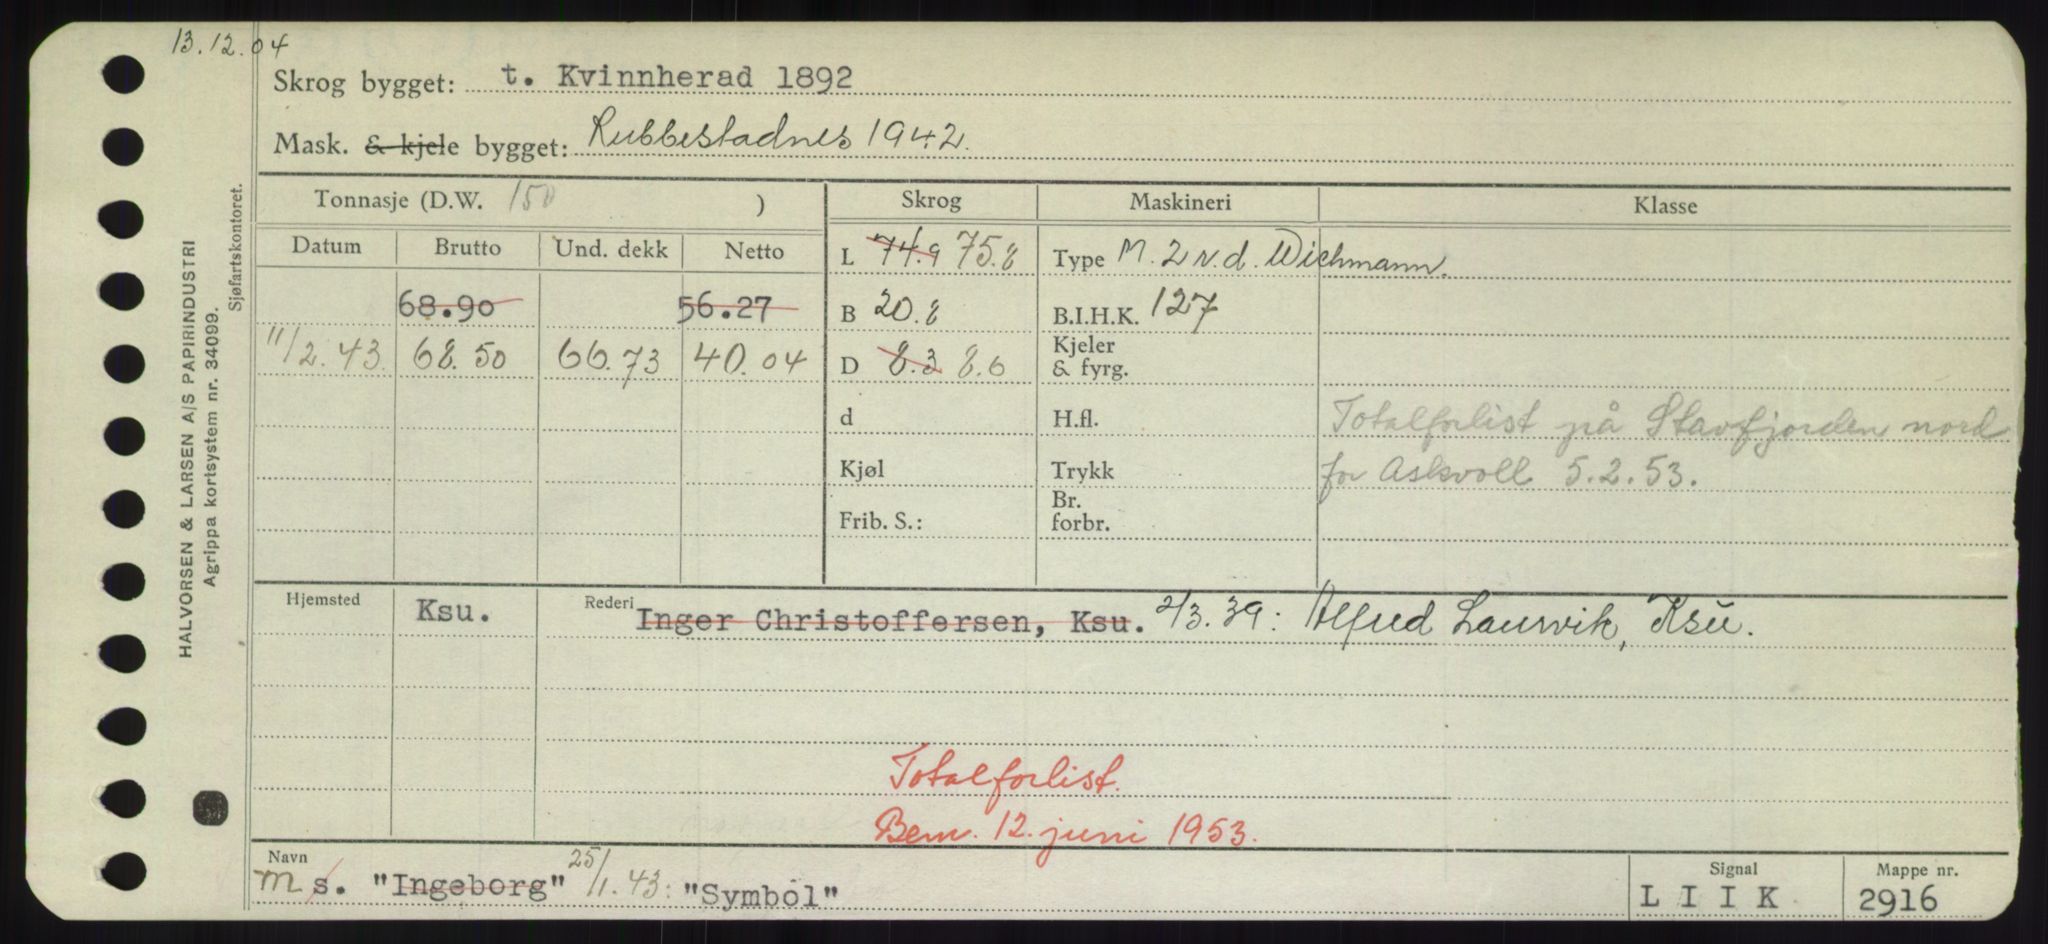 13.12.04
Skrog bygget: t. Kvinnherad 1892
Mask. & kjele bygget: Rubbestadnes 1942.
Tonnasje (D.W. 150 ) Skrog Maskineri Klasse
Datum Brutto Und. dekk Netto L 74.9 75.8 Type M. 2 v. d. Wichmann.
68.90 56.27 B 20.8 B.I.H.K. 127
11/2.43. 68.50 66.73 40.04 D 8.3 8.6 Kjeler
& fyrg.
d H.fl. Totalforlist på Stavfjorden nord
Kjøl Trykk for Askvoll 5.2.53.
Br.
Frib. S.: forbr.
Hjemsted Ksu. Rederi Inger Christoffersen, Ksu. 2/3.39: Alfred Lauvvik, Ksu.
Totalforlist.
Bem. 12. juni 1953.
Navn Signal Mappe nr.
m s. "Ingeborg" 25/1.43: "Symbol" L I I K 2916
HALVORSEN & LARSEN A/S PAPIRINDUSTRI
Agrippa kortsystem nr. 34099.
Sjøfartskontoret.